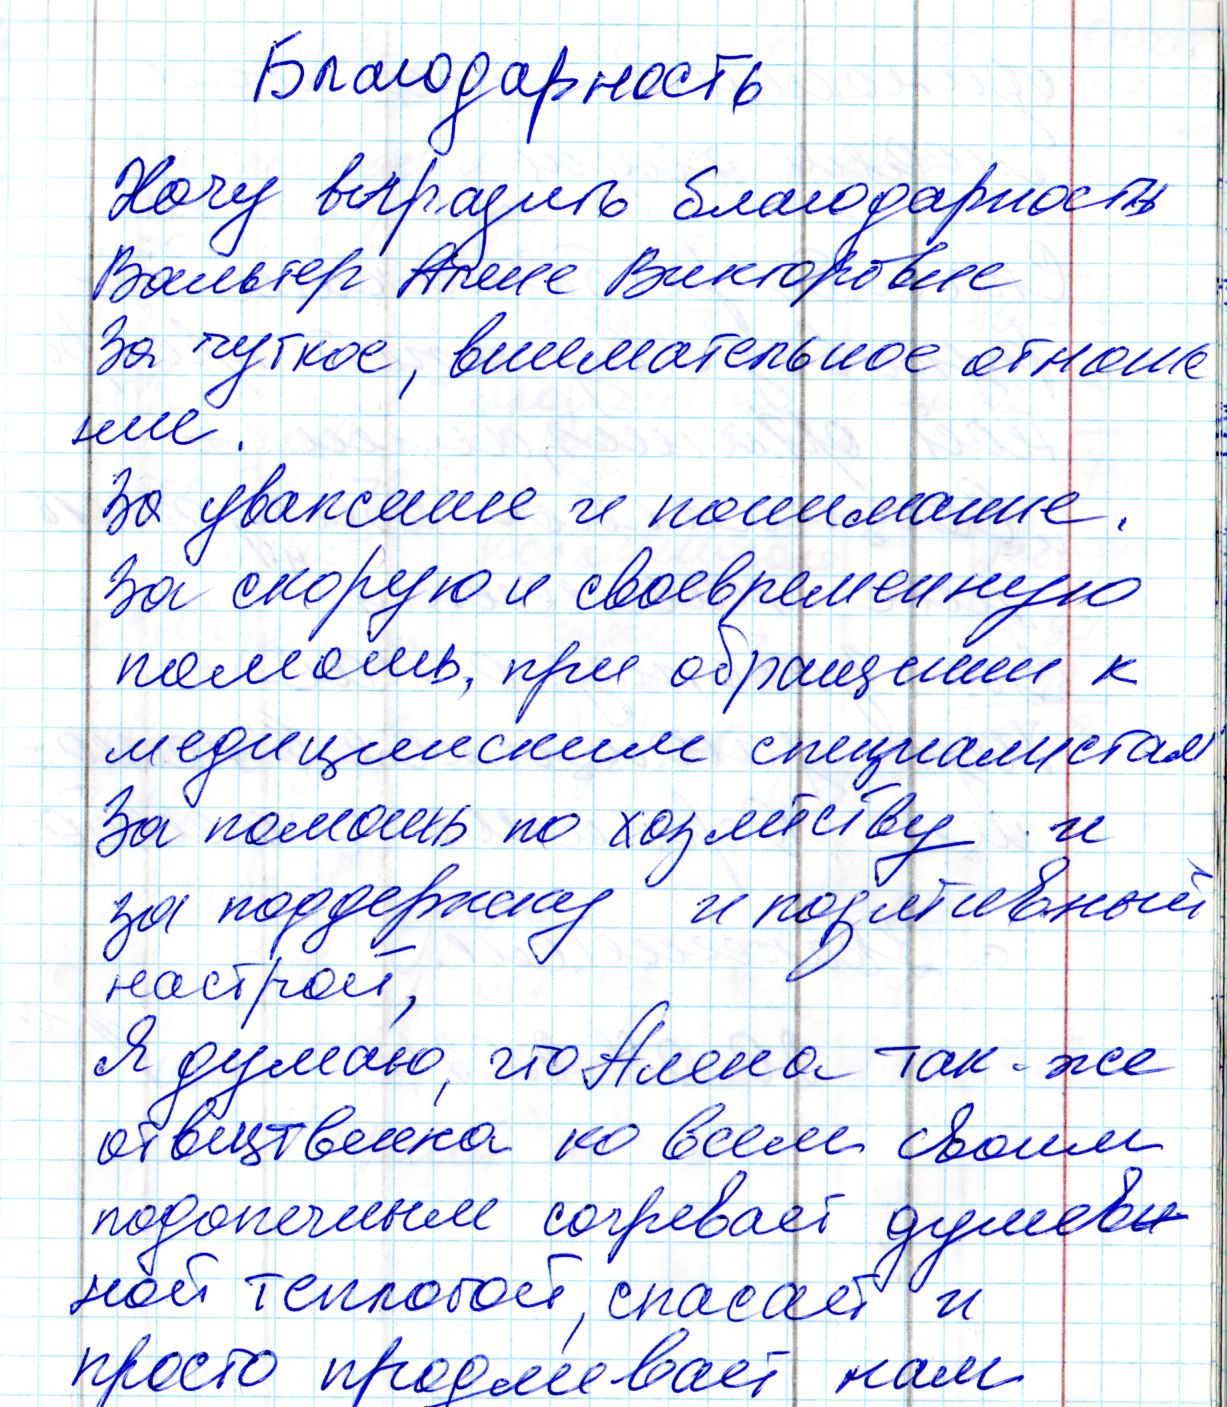 Благодарность
Хочу выразить благодарность
Вальтер Анне Викторовне
За чуткое, внимательное отноше
ние.
За уважение и понимание.
За скорую и своевременную
помошь, при обращении к
медицинским специалистам
За помошь по хозяйству и
за поддержку и позитивный
настрой,
Я думаю, что Алена так-же
ответственна ко всем своим
подопечным согревает душевн
ной теплотой, спасает и
просто продлевает нам